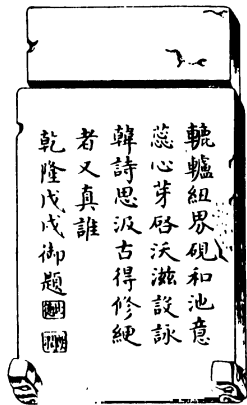 轆轤紐界硯和池意
蕊心芽啓沃滋設詠
韓詩思汲古得修綆
者又真誰
乾隆戊戌御題